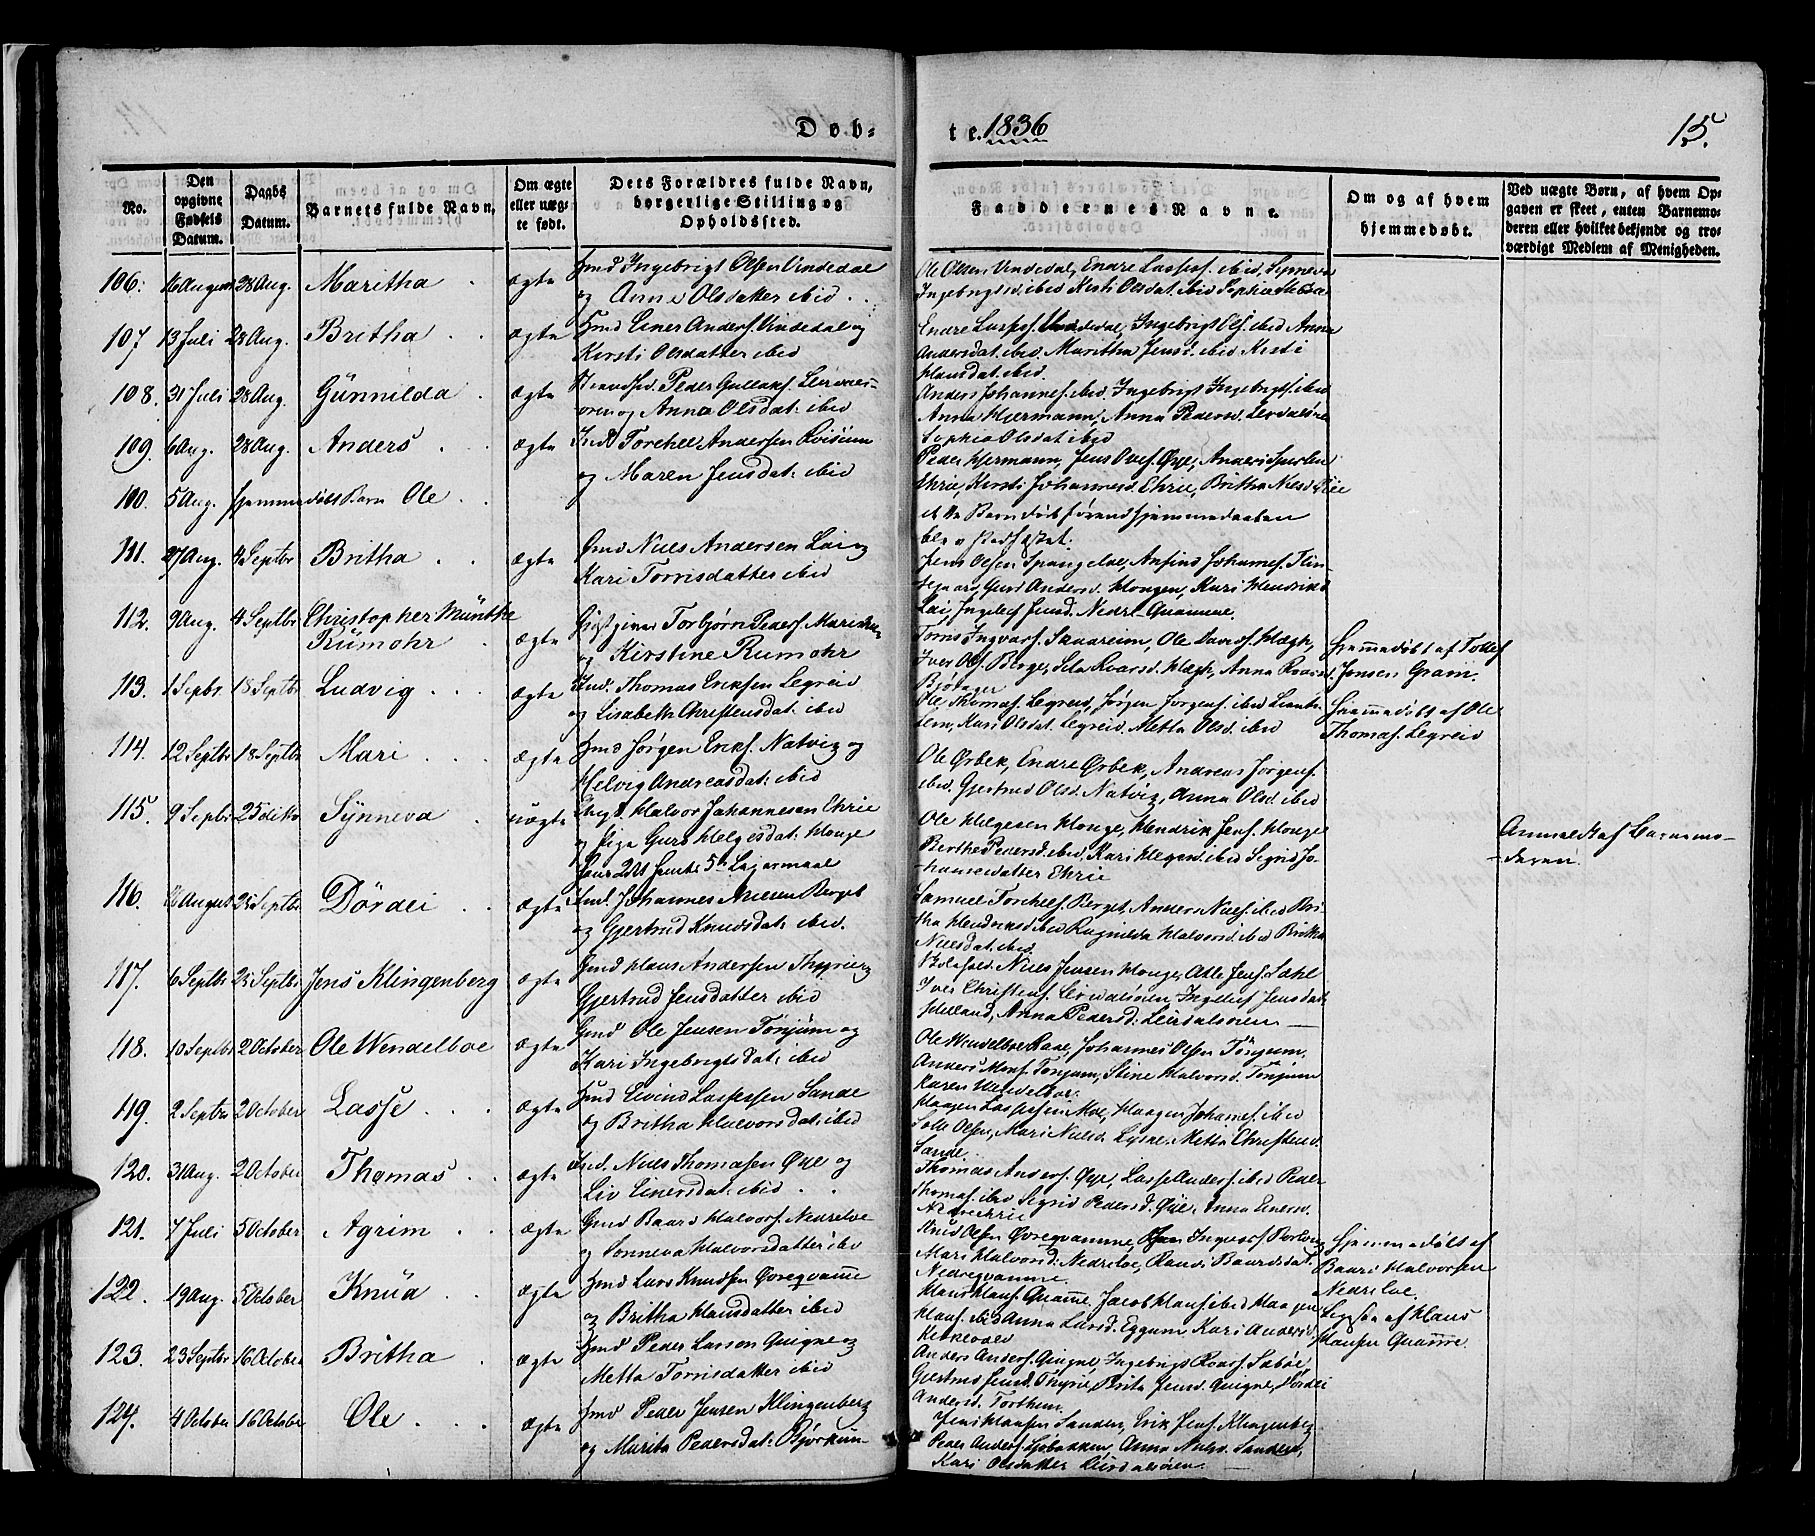 Døb- te. 1836 15.
No.
Den opgivne Fødsels Datum.
Daabs Datum.
Barnets fulde Navn.
Om ægte eller uægte født.
Dets Forældres fulde Navn, borgerlige Stilling og Opholdssted.
Faddernes Navne.
Om og af hvem hjemmedøbt.
Ved uægte Børn, af hvem Opgaven er skeet, enten Barnemoderen eller hvilket bekjendt og troværdigt Medlem af Menigheden.
106. 16 August 28 Aug. Maritha ægte Gmd Ingebrigt Olsen Vindedal
og Anne Olsdatter ibid
Ole Olsen Vindedal, Endre Lasses. ibid, Synneva
Ingebrigtsd. ibid Kirsti Olsdat. ibid Sophia
107. 13 Juli 28 Aug. Britha ægte Hmd Einer Anders. Vindedal og
Kersti Olsdatter ibid
Endre Lasses. Vindedal, Ingebrigt Ols. ibid Anna
Andersdat. ibid. Maritha Jensd. ibid Kersti
Hansdat. ibid.
108. 31 Juli 28 Aug. Günnilda ægte Strandsd. Peder Gullaks. Leirdals-
øren og Anna Olsdat. ibid
Anders Johannes. ibid, Ingebrigt Ingebrigts. ibid
Anna Hjermann, Anna Pedersd. Lerdalsøre
Sophia Olsdat ibid
109. 6 Aug. 28 Aug. Anders ægte Ind. Torchel Andersen
og Maren Jensdat. ibid
Peder Hjermann, Jens Oves. Øye, Anders
Ehrie, Kersti Johannesd. Ehrie, Britha Nielsd. Øie
110. 5 Aug. hjemmedøbt Barn Ole
dette Barn døde førend hjemmedaaben
blev stadfæstet.
111. 27 Aug. 4 Septbr Britha ægte Gmd Niels Andersen Lai og
Kari Torrisdatter ibid
Jens Olsen Spangeloe, Anfind Johannes.
Guro Andersd. Hougen, Kari Hendriksd.
Lai, Ingelef Jensd. Nedre Quamme.
112. 9 Aug. 4 Septbr Christopher Münthe
Rümohr ægte Gjestgiver Torbjørn Peders.
og Kirstine Rumohr
Torris Ingvars. Skaareim, Ole Davids. Hægh,
Iver Ols. Berge, Sila Roarsd. Hægh, Anna Roarsd.
Hjemmedøbt af Tollef
Jensen Gram.
113. 1 Sepbr. 18 Septbr Ludvig ægte Ind. Thomas Eriksen Legreid
og Lisabeth Christensdat. ibid
Ole Thomas. Legreid, Jørgen Jørgens. ibid
Kari Olsdat. Legreid. Metta Olsd. ibid
Hjemmedøbt af Ole
Thomas. Legreid
114. 12 Septbr 18 Septbr Mari ægte Hmd Jørgen Eriks. Natvig og
Helvig Andreasdat. ibid
Ole Ørbek, Endre Ørbek, Andreas Jørgens.
ibid, Gjertrud Olsd. Natvig, Anna Olsd. ibid
115. 9 Septbr 25 ditto Synneva uægte Ungk. Halvor Johannesen Ehrie
og Pige Guro Helgesdat. Houge
hans 2det hendes 5te Leiermaal
Ole Helgesen Houge, Hendrik Jens. Houge
Berthe Pedersd. ibid, Kari Helgesd. ibid Sigrid Jo-
hannesdatter Ehrie
Anmeldt af Barnemo-
deren.
116. August 25 Septbr Dördei ægte Ind. Johannes Nielsen Berget
og Gjertrud Knudsdat. ibid.
Samuel Torchels. Berget, Anders Niels. ibid Bri-
tha Hendriksd. ibid Ragnilda Halvorsd. ibid Britha
Nielsdat. ibid
117. 6 Septbr 25 Septbr Jens Klingenberg ægte Gmd Hans Andersen Thyrie og
Gjertrud Jensdatter ibid
Niels Jensen Houge, Atle Jens. Sæhl
Iver Christens. Leirdalsøren, Ingelef Jensdat.
Helland, Anna Pedersd. Leirdalsøren
118. 10 Septbr 2 October Ole Wendelboe ægte Gmd Ole Jensen Tønjum og
Kari Ingebrigtsdat. ibid
Ole Wendelboe Raae, Johannes Olsen Tönjum.
Anders Mons. Tonjum, Stine Halvorsd. Tonjum
Karen Wendelboe.
119. 2 Septbr 2 October Lasse ægte Hmd Eivind Lassesen Sande
og Britha Halvorsdat. ibid
Haagen Lassesen Moe, Haagen Johannes. ibid
Olsen, Mari Nielsd. Lysne, Metta Christensd.
Sande.
120. 31 Aug. 2 October Thomas ægte Ind. Niels Thomasen Øye og
Liv Einersdat. ibid
Thomas Anders. Øye, Lasse Anders. ibid Peder
Thomas. ibid Sigrid Pedersd. Øie, Anna Einersd.
121. 7 Juli 5 October Agrim ægte Gmd Baard Halvors. Nedreloe
og Sønneva Halvorsdatter ibid
Knud Olsen Øvreqvamme, Ingvars.
Mari Halvorsd. Nedreloe, Randi Baardsdat.
Nedreqvamme.
Hjemmedøbt af
Baard Halvorsen
Nedreloe.
122. 19 Aug. 5 October Knüd ægte Gmd Lars Knudsen Øvreqvamme
og Britha Hansdatter ibid
Hans Hans. Quamme, Jacob Hans. ibid Haagen
Hans. ibid Anna Larsd. Eggum, Kari Andersd.
Kirkevold
Ligesaa af Hans
Hansen Quamme.
123. 23 Septbr 16 October Britha ægte Gmd Peder Larsen Quigne og
Metta Torrisdatter ibid
Anders Anders. Quigne, Ingebrigt Roars. Sæbøe,
Gjertrud Jensd. Thyrie, Brita Jensd. Quigne, Dördei
Andersd. Torthun.
124. 4 October 16 October Ole ægte Gmd Peder Jensen Klingenberg
og Marita Pedersdat. Bjørkum
Jens Hansen Sanden, Erik Jens. Klingenberg
Peder Anders. Sjøbakken, Anna Nielsd. Sanden,
Kari Olsdatter Leirdalsøren.